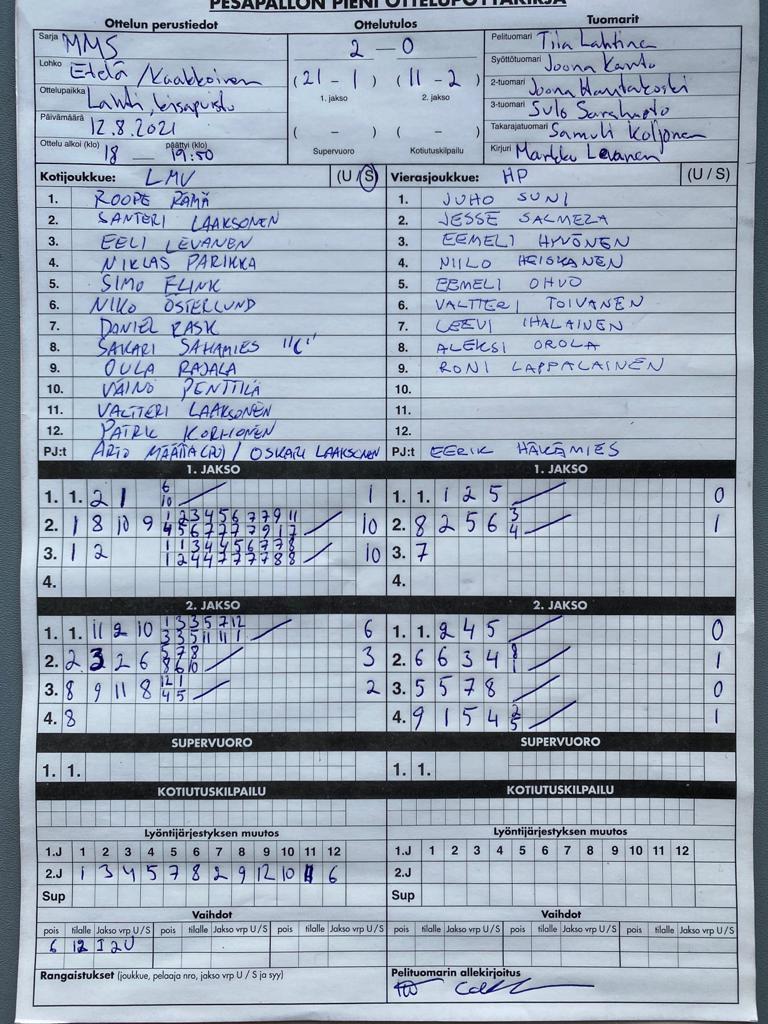 PESÄPALLON PIENI OTTELUPÖYTÄKIRJA
Ottelun perustiedot
Sarja MMS
Lohko Etelä / Kaakkoinen
Ottelupaikka Lahti, kisapuisto
Päivämäärä 12.8.2021
Ottelu alkoi (klo) 18 — päättyi (klo) 19:50
Ottelutulos
2 — 0
(21 – 1) (11 – 2)
1. jakso 2. jakso
( – ) ( – )
Supervuoro Kotiutuskilpailu
Tuomarit
Pelituomari Tiia Lahtinen
Syöttötuomari Joona Kanto
2-tuomari Joona Hautakoski
3-tuomari Sulo
Takarajatuomari Samuli Koljonen
Kirjuri Markku Levanen
Kotijoukkue: LMV (U / S)
1. ROOPE RÄMÄ
2. SANTERI LAAKSONEN
3. EELI LEVANEN
4. NIKLAS PARIKKA
5. SIMO FLINK
6. NIKO ÖSTERLUND
7. DANIEL RASK
8. SAKARI SAHAMIES "C"
9. OULA RAJALA
10. VÄINÖ PENTTILÄ
11. VALTTERI LAAKSONEN
12. PATRIK KORHONEN
PJ:t ARTO MÄÄTTÄ (PJ) / OSKARI LAAKSONEN
Vierasjoukkue: HP (U / S)
1. JUHO SUNI
2. JESSE SALMELA
3. EEMELI HYVÖNEN
4. NIILO HEISKANEN
5. EEMELI OHVO
6. VALTTERI TOIVANEN
7. LEEVI IHALAINEN
8. ALEKSI OROLA
9. RONI LAPPALAINEN
10.
11.
12.
PJ:t EERIK HÄKÄMIES
1. JAKSO
1. 1. 2 1 6 1
10
2. 1 8 10 9 1 2 3 4 5 6 7 7 9 11 10
4 5 6 7 7 7 7 9 1 7
3. 1 2 1 1 3 4 4 5 6 7 7 8 10
1 2 4 4 7 7 7 7 8 8
4.
1. JAKSO
1. 1. 1 2 5 0
2. 8 2 5 6 3 1
4
3. 7
4.
2. JAKSO
1. 1. 11 2 10 1 3 3 5 7 12 6
3 3 5 11 11 1
2. 2 3 2 6 5 7 8 3
8 6 10
3. 8 9 11 8 12 1 2
4 5
4. 8
2. JAKSO
1. 1. 2 4 5 0
2. 6 6 3 4 8 1
1
3. 5 5 7 8 0
4. 9 1 5 4 2 1
5
SUPERVUORO
1. 1.
SUPERVUORO
1. 1.
KOTIUTUSKILPAILU
KOTIUTUSKILPAILU
Lyöntijärjestyksen muutos
1.J 1 2 3 4 5 6 7 8 9 10 11 12
2.J 1 3 4 5 7 8 2 9 12 10 11 6
Sup
Lyöntijärjestyksen muutos
1.J 1 2 3 4 5 6 7 8 9 10 11 12
2.J
Sup
Vaihdot
pois tilalle Jakso vrp U / S pois tilalle Jakso vrp U / S pois tilalle Jakso vrp U / S
6 12 I 2 U
Vaihdot
pois tilalle Jakso vrp U / S pois tilalle Jakso vrp U / S pois tilalle Jakso vrp U / S
Rangaistukset (joukkue, pelaaja nro, jakso vrp U / S ja syy)
Pelituomarin allekirjoitus